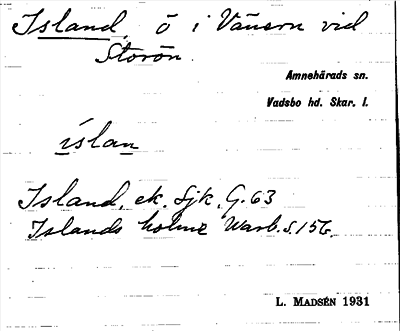 Island, ö i Vänern vid
Storön.
Amnehärads sn.
Vadsbo hd. Skar. l.
íslan
Island, ek. Sjk. G. 63
Islands holme Warb. S. 156.
L. MADSÉN 1931